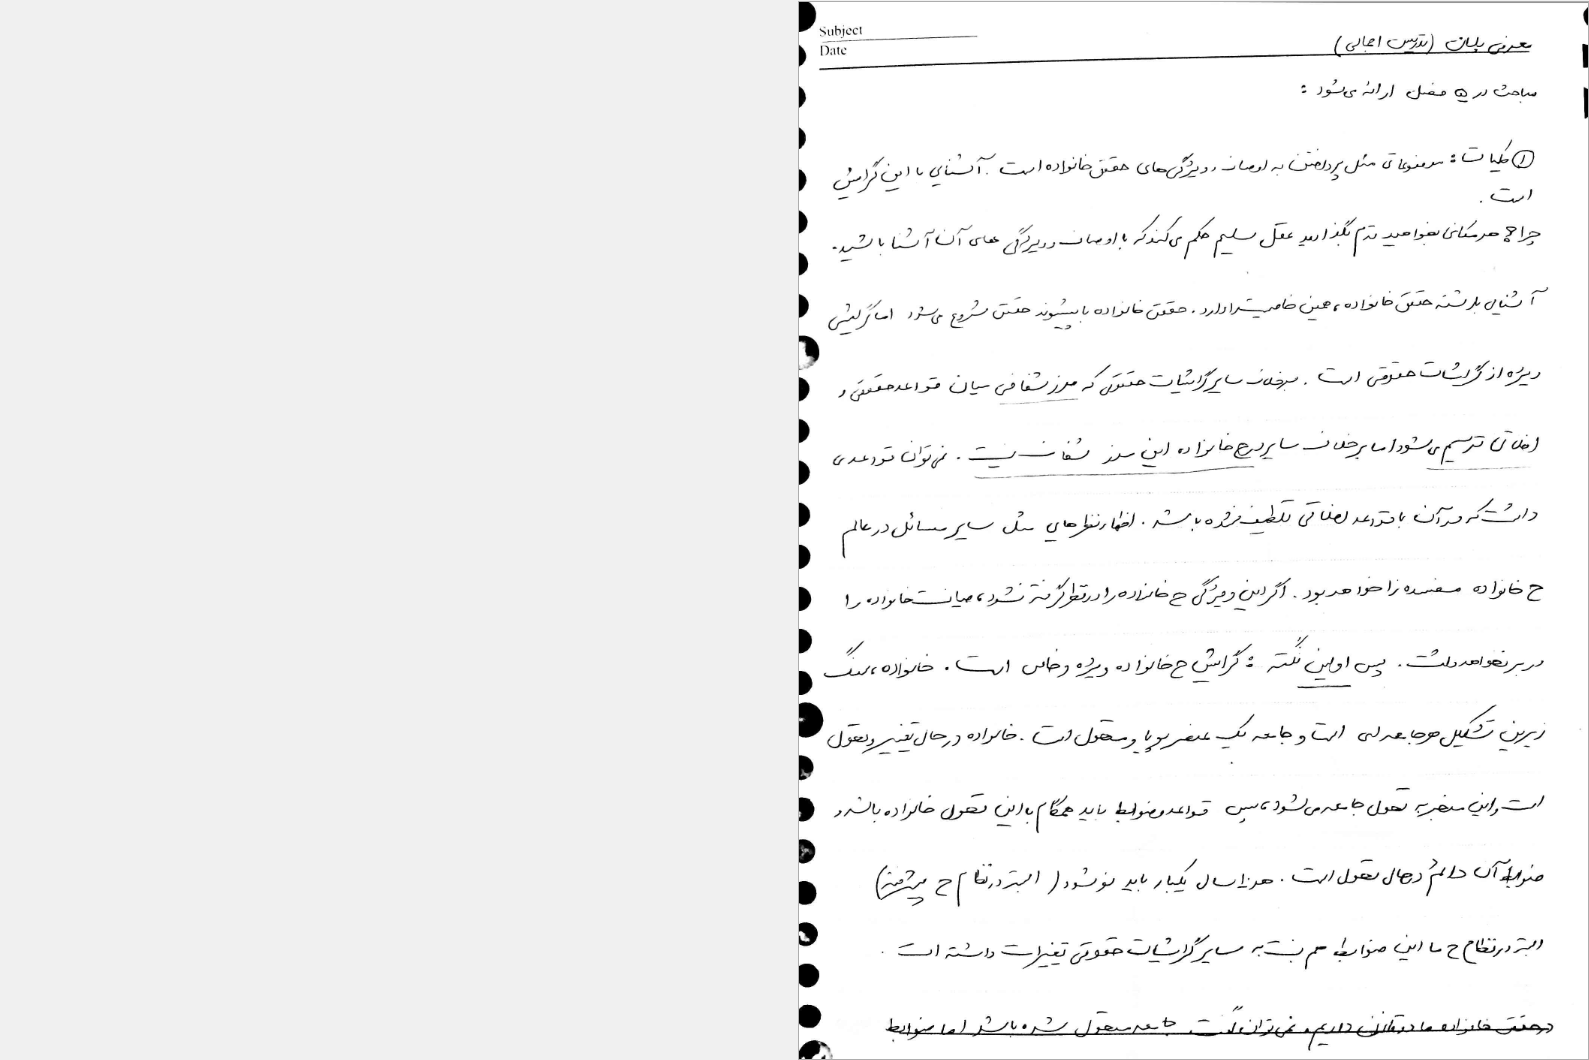 Subject
Date
معرفی پلان (تدریس اجمالی)
مباحث در ۵ فصل ارائه می‌شود :
① کلیات : موضوعاتی مثل پرداختن به اوصاف و ویژگی‌های حقوق خانواده است . آشنایی با این گرایش
است .
چرا ؟ هر مکانی بخواهید قدم بگذارید عقل سلیم حکم می‌کند که با اوصاف و ویژگی های آن آشنا باشید .
آشنایی با رشته حقوق خانواده ، همین خاصیت را دارد . حقوق خانواده با پیشوند حقوق شروع می‌شود اما گرایش
ویژه از گرایشات حقوقی است . برخلاف سایر گرایشات حقوقی که مرز شفافی میان قواعد حقوقی و
اخلاقی ترسیم می‌شود اما برخلاف سایر در ح خانواده این مرز شفاف نیست . نمی‌توان قواعدی
داشت که در آن با قواعد اخلاقی تلطیف نشده باشد . اظهار نظرهایی مثل سایر مسائل در عالم
ح خانواده مفسده زا خواهد بود . اگر این ویژگی ح خانواده را در نظر گرفته نشود ، صیانت خانواده را
در بر نخواهد داشت . پس اولین نکته : گرایش ح خانواده ویژه و خاص است . خانواده ، سنگ
زیرین تشکیل هر جامعه ای است و جامعه یک عنصر پویا و متحول است . خانواده در حال تغییر و تحول
است و این منجر به تحول جامعه می‌شود ، پس قواعد و ضوابط باید همگام با این تحول خانواده باشد و
ضوابط آن دائم در حال تحول است . هر سال یکبار باید نو شود ( البته در نظام ح پیشرفته )
البته در نظام ح ما این ضوابط هم نسبت به سایر گرایشات حقوقی تغییرات داشته است .
در حقوق خانواده ما در قانون داریم و نمی‌توان گفت جامعه متحول شده باشد اما ضوابط